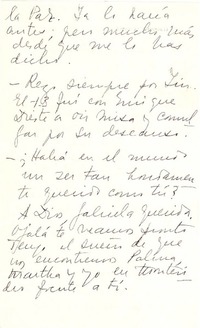 la Paz. Ya lo hacía
antes; pero mucho más
desde que me lo has
dicho.
— Rezo siempre por Yin.
El 13 fui con mi gue
a oír misa y comul
gar por su descanso. —
— ¡Habrá en el mundo
un ser tan hondamen
te querido como tú?
A Dios Gabriela querida.
Ojalá te veamos pronto
Tengo el sueño de que
nos encontremos Palma,
Martha y yo en
des frente a tí.